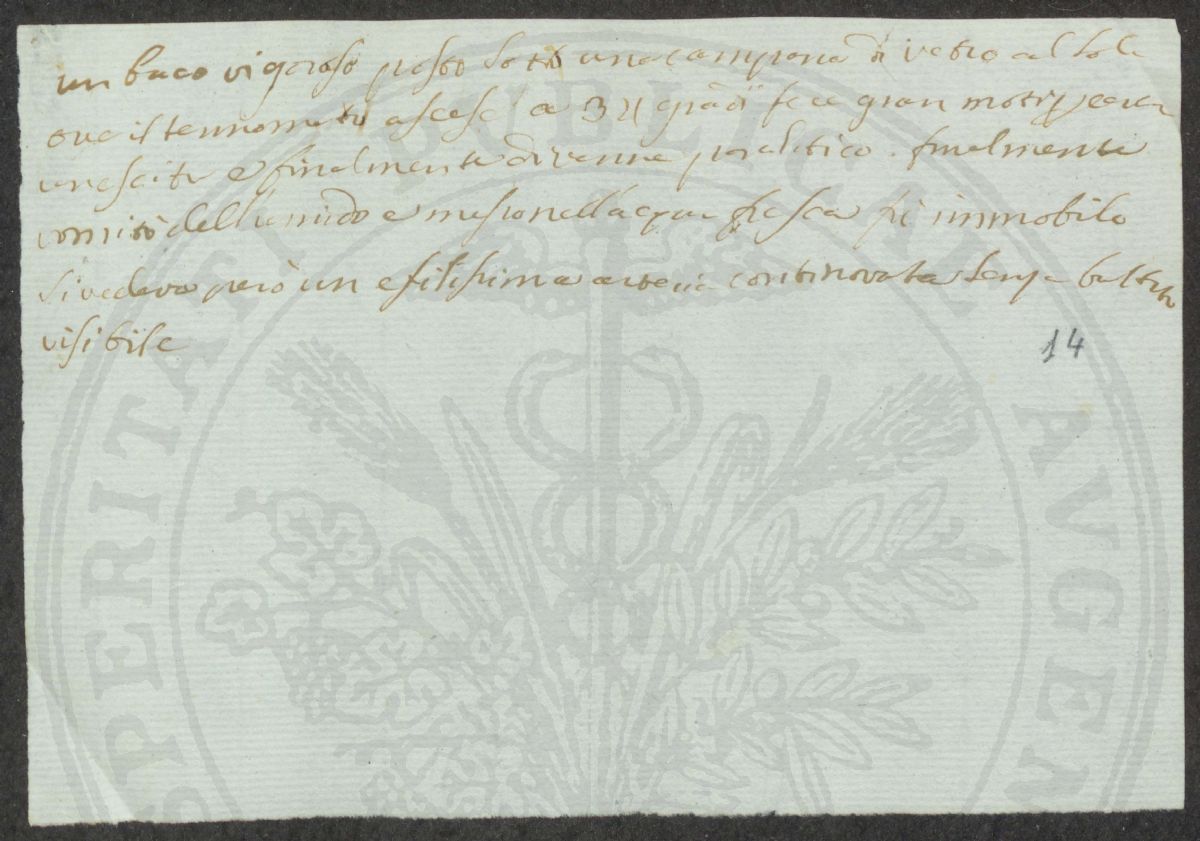 un baco vigoroso posto sotto una campana di vetro al sole
ove il termometro ascese a 34 gradi fece gran moti per cercar
una escita e finalmente divenne paralitico. finalmente
vomitò dell'umido e messo nell'acqua fresca fù immobile
si vedeva però un esilissima arteria continovata senza battito
visibile
14
PROSPERITATI PUBLICAE AUGENDAE